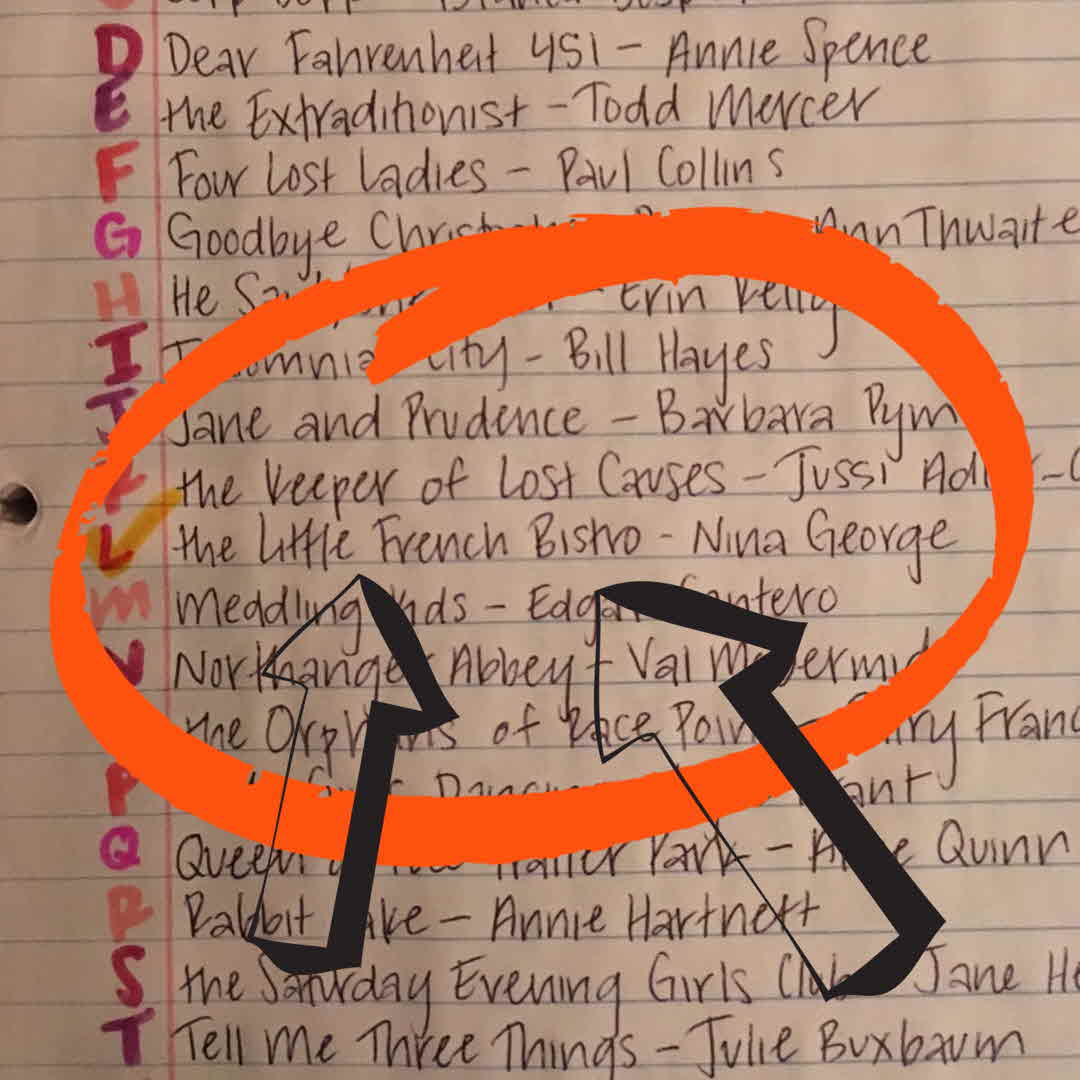 D Dear Fahrenheit 451 – Annie Spence
E the Extraditionist – Todd Mercer
F Four Lost Ladies – Paul Collins
G Goodbye Ann Thwaite
H He Erin Kelly
I City – Bill Hayes
J Jane and Prudence – Barbara Pym
the Keeper of Lost Causes – Jussi
L the Little French Bistro – Nina George
M Meddling Kids – Edgar Cantero
N Northanger Abbey – Val McDermid
the Orphans of Race Point –
P
Q Queen Trailer Park – Quinn
R Rabbit Cake – Annie Hartnett
S the Saturday Evening Girls Club Jane
T Tell Me Three Things – Julie Buxbaum